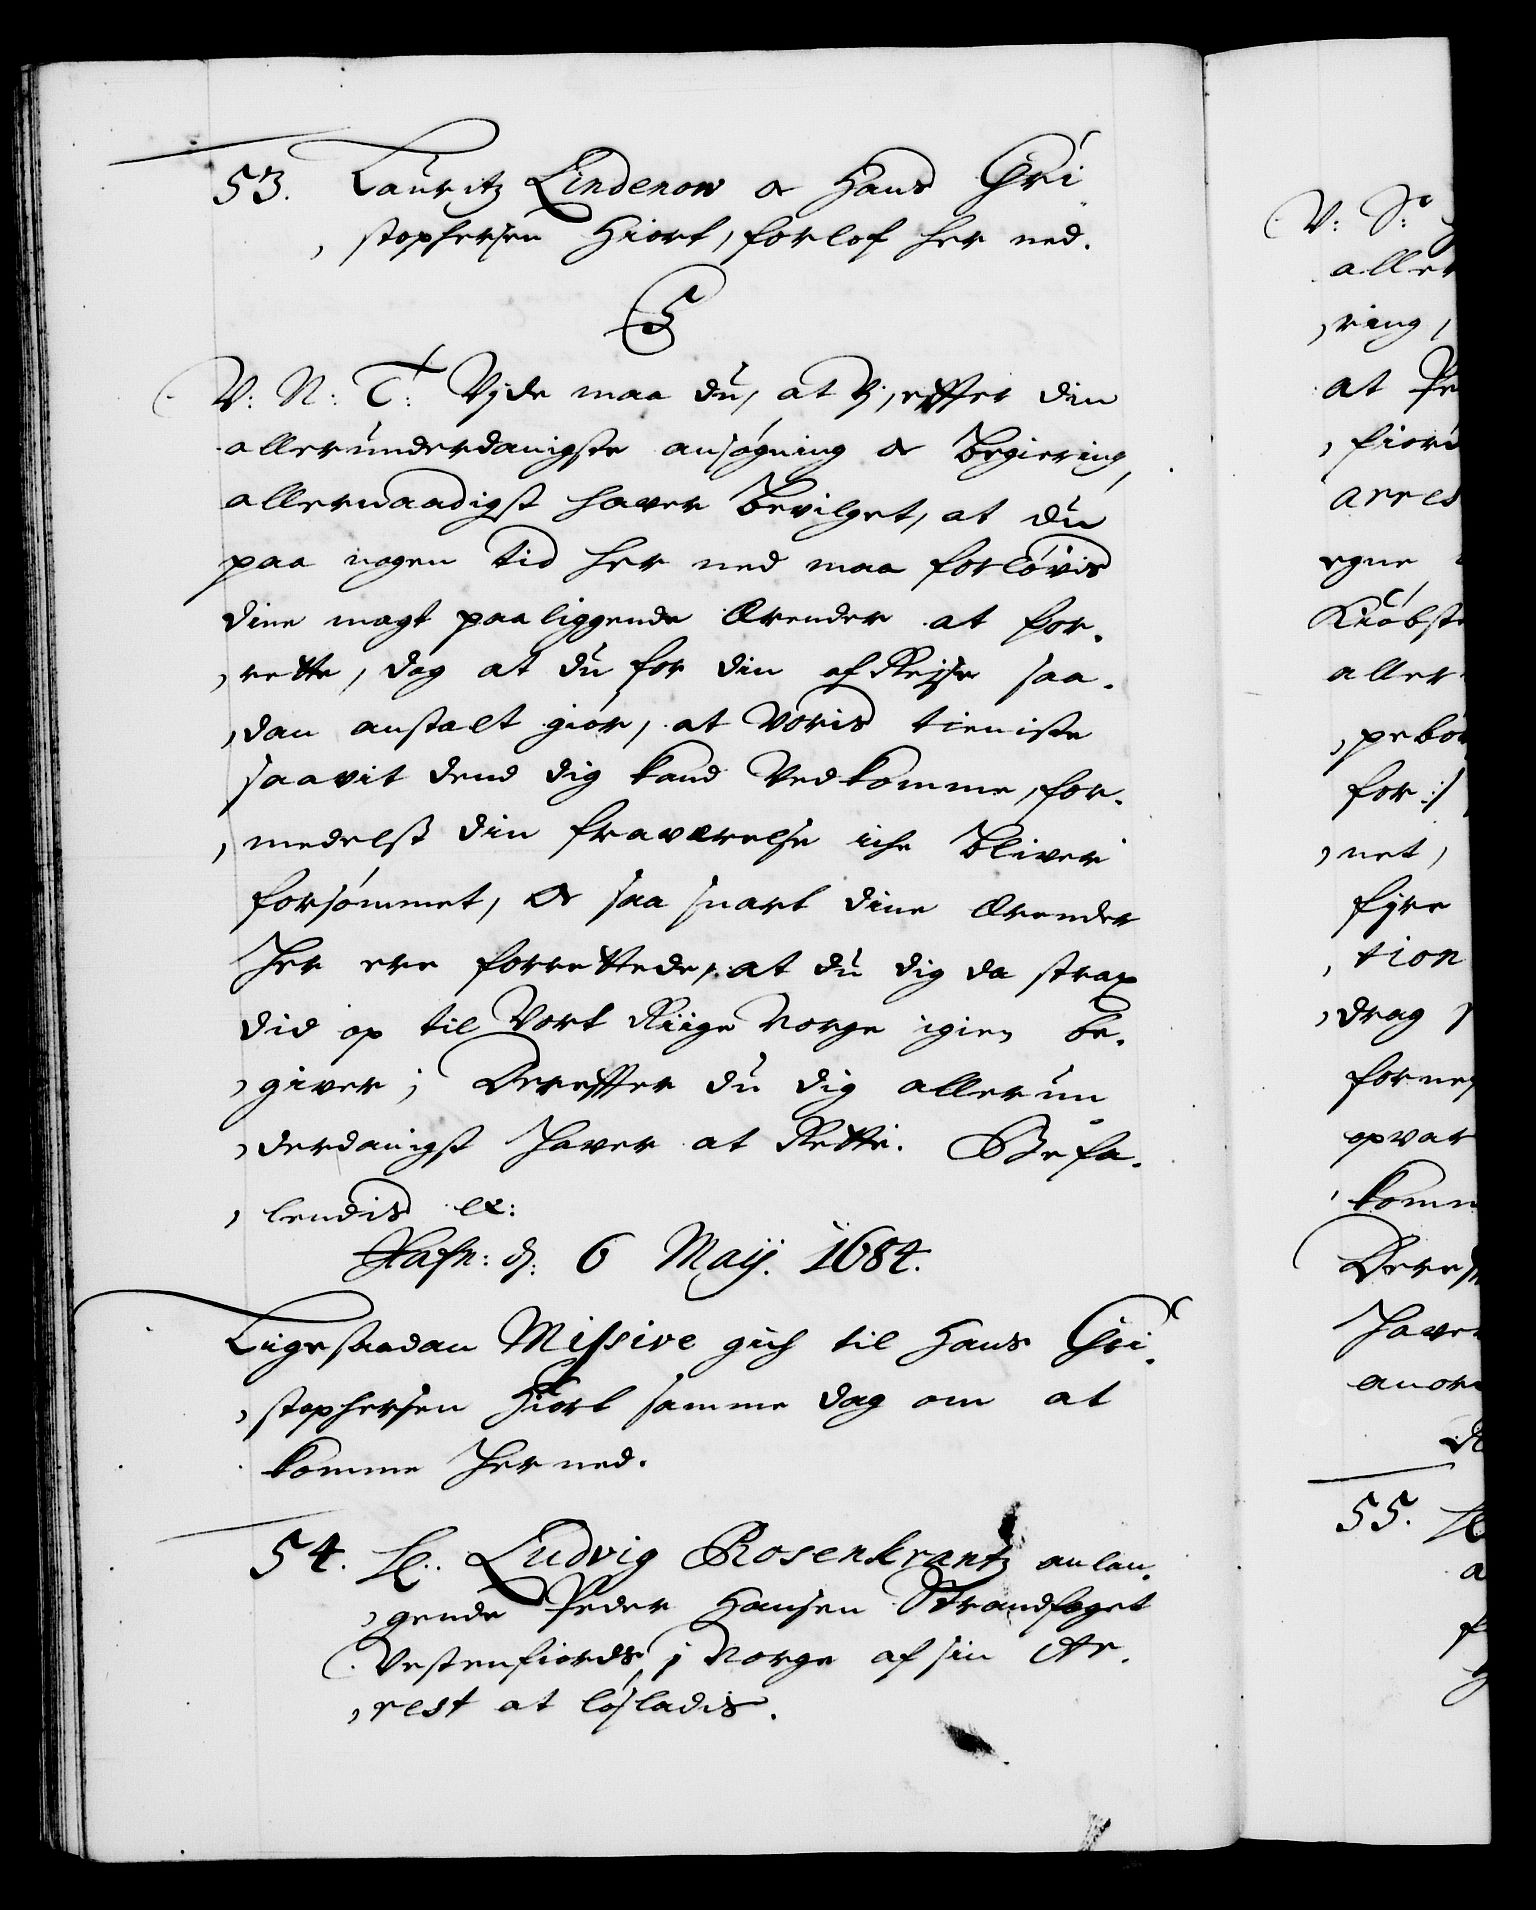 53. Lauritz Lindenow oc Hans Chri-
stophersen Hiort, forlof her ned.
C5
V: N: T: Vjde maa du, at Vj, effter din
allerunderdanigste ansøgning oc begiering,
allernaadigst hafver bevilget, at du
paa nogen tid her ned maa forløvis
dine magt paaliggende ærender at for-
rette, dog at du for din afRejse saa-
dan anstalt giør, at Voris tieniste
saavit dend dig kand Vedkomme, for-
medelst din fraværelse iche bliver
forsømmet, oc saa snart dine ærender
her ere forrettede, at du dig da strax
did op til Vort Riige Norge igien be-
giver; Dereffter du dig allerun-
derdanigst haver at Rette. Befa-
lendis etc:
Hafn: d: 6 Maij. 1684.
Ligesaadan Missive gich til Hans Chri-
stophersen Hiort samme dag om at
komme her ned.
54. Hr. Ludvig Rosenkrantz anlan-
gende Peder Hansen Strandfoget
Vestenfiords i Norge af sin Ar-
rest at løsladis.
V: Sº
aller
ring,
at Pe
fiord
arres
egne
Kiøbste
aller
pebør
for:/
net,
fyre
tion
drag
forne
opvar
komm
Dereff
haver
anor
55.